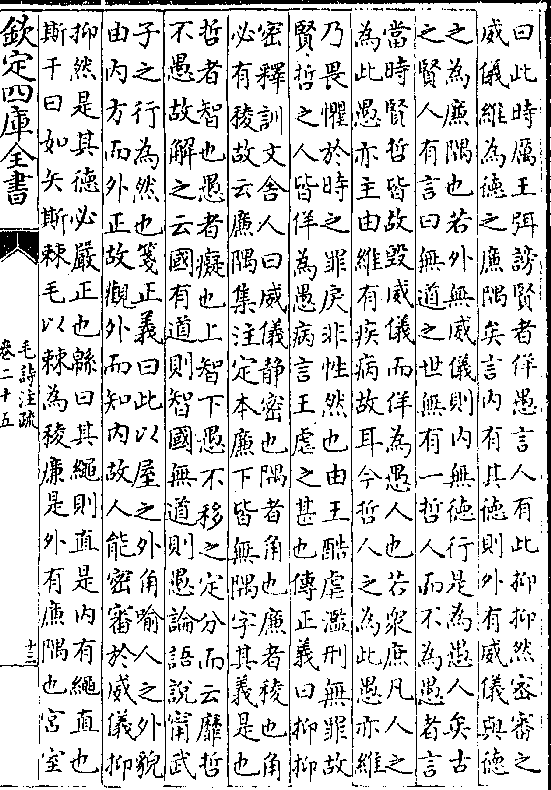 曰此時厲王弭謗賢者佯愚言人有此抑抑然密審之
威儀維為德之廉隅矣言内有其德則外有威儀與德
之為廉隅也若外無威儀則内無德行是為愚人矣古
之賢人有言曰無道之世無有一哲人而不為愚者言
當時賢哲皆故毁威儀而佯為愚人也若衆庶凡人之
為此愚亦主由維有疾病故耳今哲人之為此愚亦維
乃畏懼於時之罪戾非性然也由王酷虐濫刑無罪故
賢哲之人皆佯為愚病言王虐之甚也傳正義曰抑抑
密釋訓文舍人曰威儀静密也隅者角也廉者稜也角
必有稜故云廉隅集注定本廉下皆無隅字其義是也
哲者智也愚者癡也上智下愚不移之定分而云靡哲
不愚故解之云國有道則智國無道則愚論語說甯武
子之行為然也箋正義曰此以屋之外角喻人之外貌
由内方而外正故觀外而知内故人能密審於威儀抑
抑然是其德必嚴正也緜曰其繩則直是内有繩直也
斯干曰如矢斯棘毛以棘為稜廉是外有廉隅也宫室
欽定四庫全書
毛詩注疏
卷二十五
十三